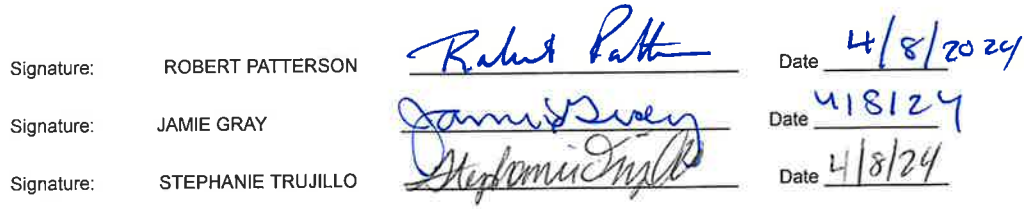 Signature: ROBERT PATTERSON Robert Patt Date 4/8/2024
Signature: JAMIE GRAY Jamie Gray Date 4/8/24
Signature: STEPHANIE TRUJILLO Stephanie Trujillo Date 4/8/24